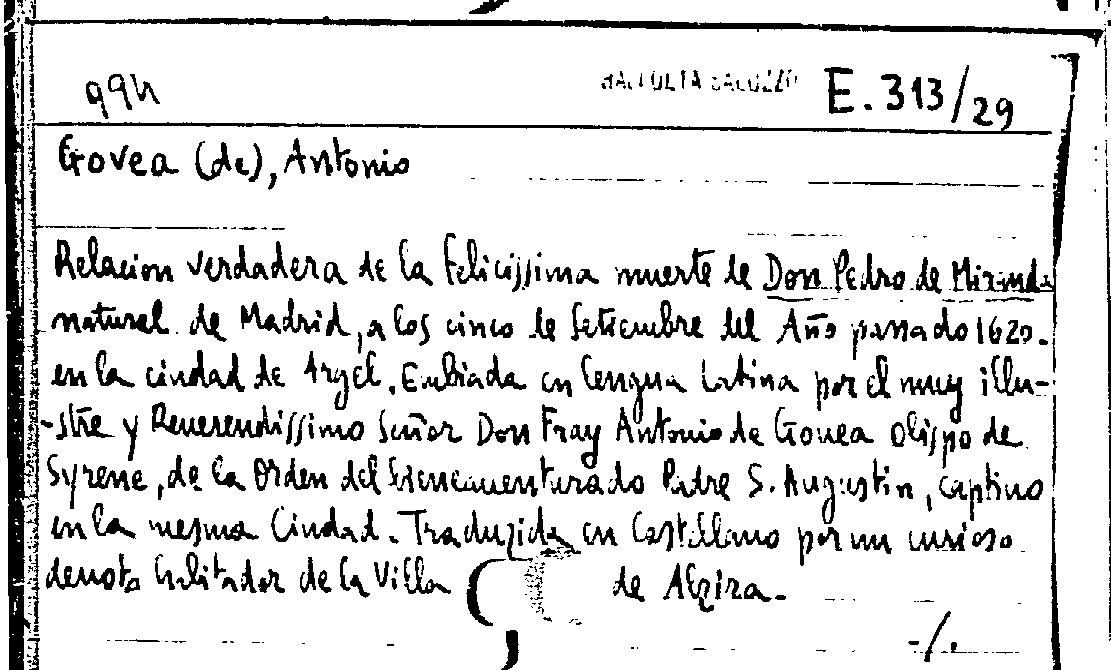 994
RACCOLTA SALUZZO E.313/29
Govea (de), Antonio
Relacion verdadera de la felicissima muerte de Don Pedro de Miranda
natural de Madrid, a los cinco de Setiembre del Año passado 1620.
en la ciudad de Argel. Embiada en lengua Latina por el muy illu-
-stre y Reuerendissimo Señor Don Fray Antonio de Gouea Obispo de
Syrene, de la Orden del bieneauenturado Padre S. Augustin, captiuo
en la mesma Ciudad. Traduzida en Castellano por un curioso
deuoto habitador de la Villa de Algira.
-/.